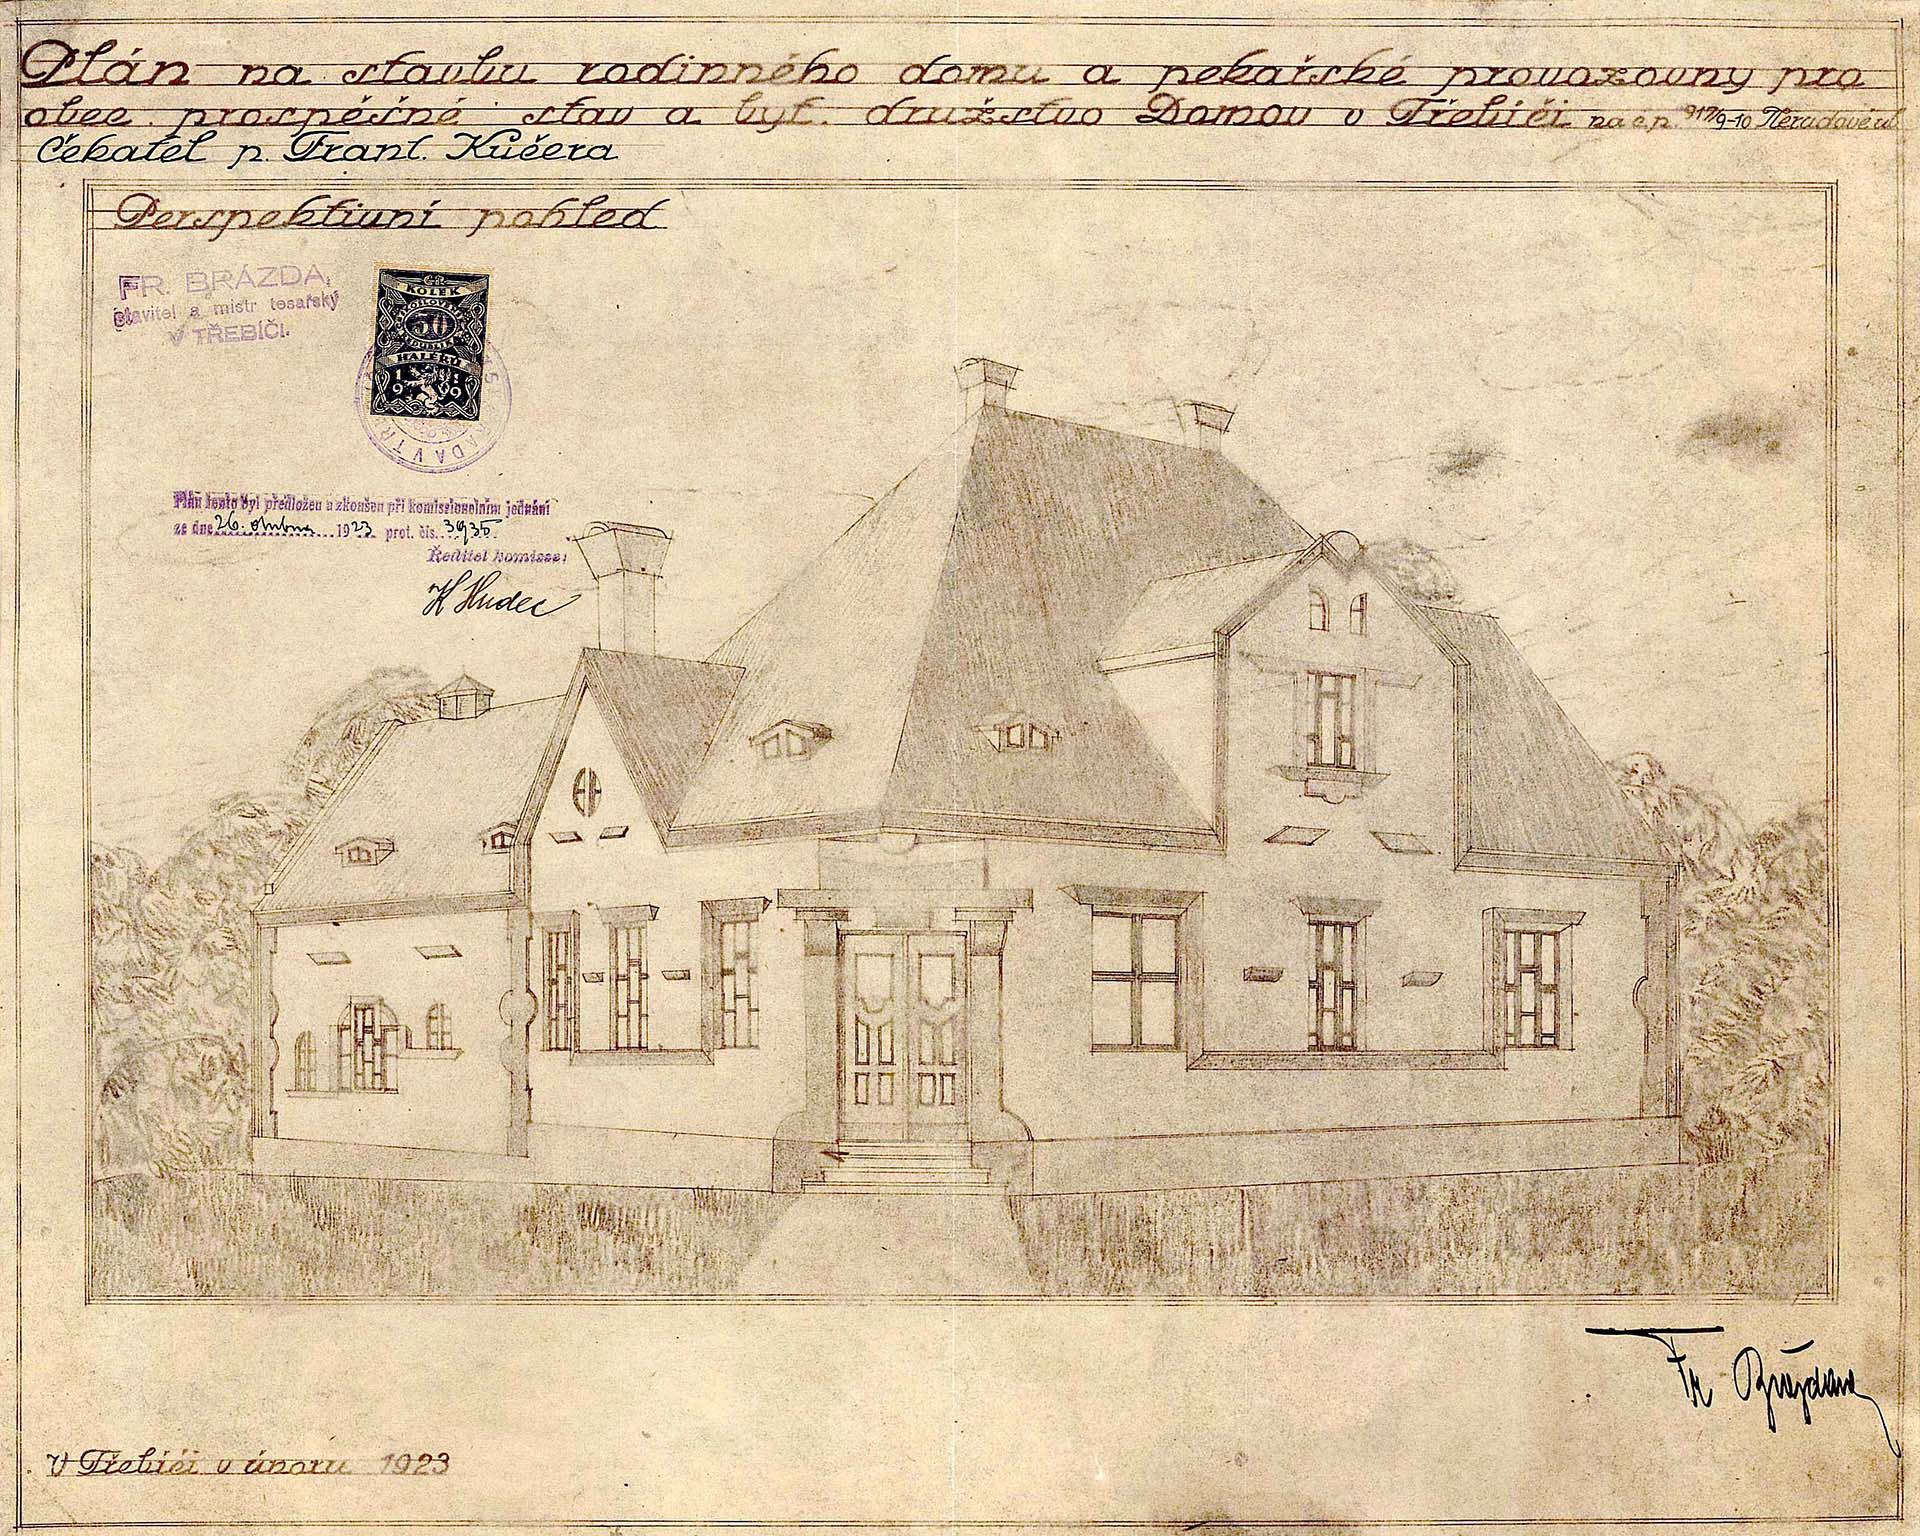 Plán na stavbu rodinného domu a pekařské provozovny pro
obec. prospěšné stav a byt. družstvo Domov v Třebíči na č.p. 917/9-10
Čekatel p. Frant. Kučera
Perspektivní pohled
FR. BRÁZDA,
stavitel a mistr tesařský
V TŘEBÍČI.
KOLEK
50
HALÉŘŮ
1919
Plán tento byl předložen a zkoušen při komissionelním jednání
ze dne 26. dubna 1923 prot. čís. 3935
Ředitel komisse:
K Hudec
Fr Brázda
V Třebíči v únoru 1923